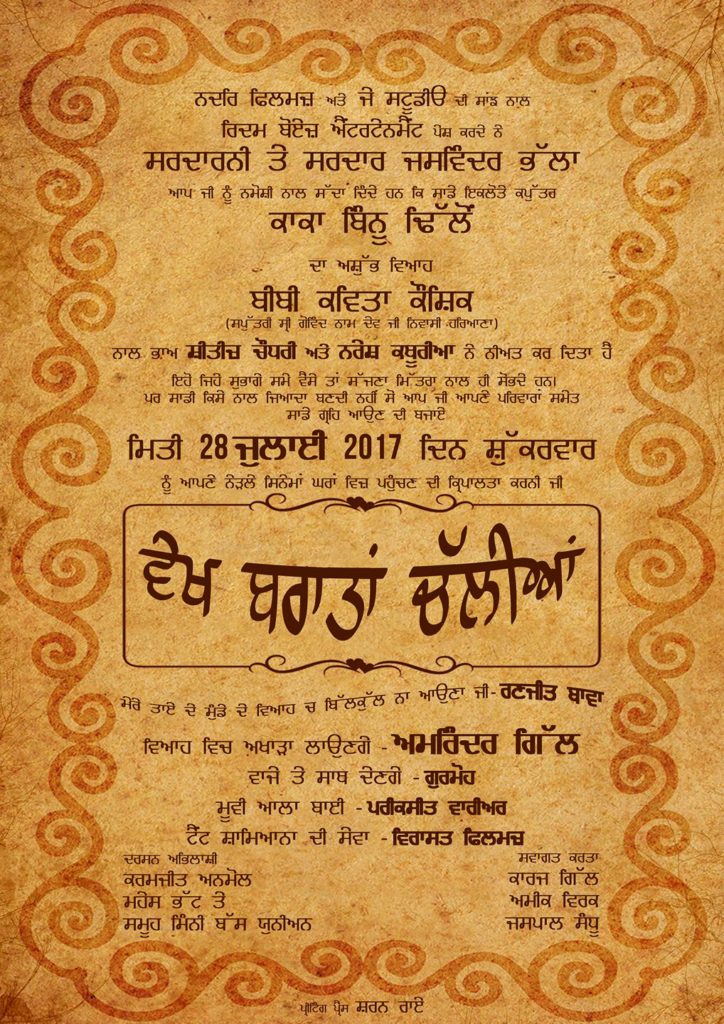 ਨਦਰਿ ਫਿਲਮਜ਼ ਅਤੇ ਜੇ ਸਟੂਡੀੳ ਦੀ ਸਾਂਝ ਨਾਲ
ਰਿਦਮ ਬੋਏਜ਼ ਐਂਟਰਟੇਨਮੈਂਟ ਪੇਸ਼ ਕਰਦੇ ਨੇ
ਸਰਦਾਰਨੀ ਤੇ ਸਰਦਾਰ ਜਸਵਿੰਦਰ ਭੱਲਾ
ਆਪ ਜੀ ਨੂੰ ਨਮੋਸ਼ੀ ਨਾਲ ਸੱਦਾ ਦਿੰਦੇ ਹਨ ਕਿ ਸਾਡੇ ਇਕਲੋਤੇ ਕਪੁੱਤਰ
ਕਾਕਾ ਬਿੰਨੂ ਢਿੱਲੋਂ
ਦਾ ਅਸ਼ੁੱਭ ਵਿਆਹ
ਬੀਬੀ ਕਵਿਤਾ ਕੌਸ਼ਿਕ
(ਸਪੁੱਤਰੀ ਸ੍ਰੀ ਗੋਵਿੰਦ ਨਾਮ ਦੇਵ ਜੀ ਨਿਵਾਸੀ ਹਰਿਆਣਾ)
ਨਾਲ ਭਾਅ ਸ਼ੀਤੀਜ਼ ਚੌਧਰੀ ਅਤੇ ਨਰੇਸ਼ ਕਥੂਰੀਆ ਨੇ ਨੀਅਤ ਕਰ ਦਿਤਾ ਹੈ
ਇਹੋ ਜਿਹੇ ਸੁਭਾਗੇ ਸਮੇਂ ਵੈਸੇ ਤਾਂ ਸੱਜਣਾ ਮਿੱਤਰਾ ਨਾਲ ਹੀ ਸੋਂਭਦੇ ਹਨ।
ਪਰ ਸਾਡੀ ਕਿਸੇ ਨਾਲ ਜਿਆਦਾ ਬਣਦੀ ਨਹੀਂ ਸੋ ਆਪ ਜੀ ਆਪਣੇ ਪਰਿਵਾਰਾਂ ਸਮੇਤ
ਸਾਡੇ ਗ੍ਰਹਿ ਆਉਣ ਦੀ ਬਜਾਏ
ਮਿਤੀ 28 ਜੁਲਾਈ 2017 ਦਿਨ ਸ਼ੁੱਕਰਵਾਰ
ਨੂੰ ਆਪਣੇ ਨੇੜਲੇ ਸਿਨੇਮਾਂ ਘਰਾਂ ਵਿਚ ਪਹੁੰਚਣ ਦੀ ਕ੍ਰਿਪਾਲਤਾ ਕਰਨੀ ਜੀ
ਵੇਖ ਬਰਾਤਾਂ ਚੱਲੀਆਂ
ਮੇਰੇ ਤਾਏ ਦੇ ਮੁੰਡੇ ਦੇ ਵਿਆਹ ਚ ਬਿੱਲਕੁੱਲ ਨਾ ਆਉਣਾ ਜੀ - ਰਣਜੀਤ ਬਾਵਾ
ਵਿਆਹ ਵਿਚ ਅਖਾੜਾ ਲਾਉਣਗੇ - ਅਮਰਿੰਦਰ ਗਿੱਲ
ਵਾਜੇ ਤੇ ਸਾਥ ਦੇਣਗੇ - ਗੁਰਮੋਹ
ਮੂਵੀ ਆਲਾ ਬਾਈ - ਪਰੀਕਸੀਤ ਵਾਰੀਅਰ
ਟੈਂਟ ਸ਼ਾਮਿਆਨਾ ਦੀ ਸੇਵਾ - ਵਿਰਾਸਤ ਫਿਲਮਜ਼
ਦਰਸਨ ਅਭਿਲਾਸ਼ੀ
ਕਰਮਜੀਤ ਅਨਮੋਲ
ਮਹੇਸ ਭੱਟ ਤੇ
ਸਮੂਹ ਮਿੰਨੀ ਬੱਸ ਯੂਨੀਅਨ
ਸਵਾਗਤ ਕਰਤਾ
ਕਾਰਜ ਗਿੱਲ
ਅਮੀਕ ਵਿਰਕ
ਜਸਪਾਲ ਸੰਧੂ
ਪ੍ਰੀਟਿੰਗ ਪ੍ਰੈਸ ਸ਼ਰਨ ਰਾਏ